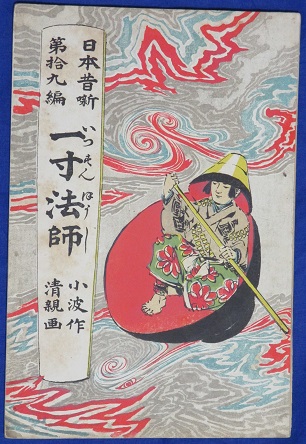 日本昔噺
第拾九編
いつすんぼうし
一寸法師
小波作
清親画